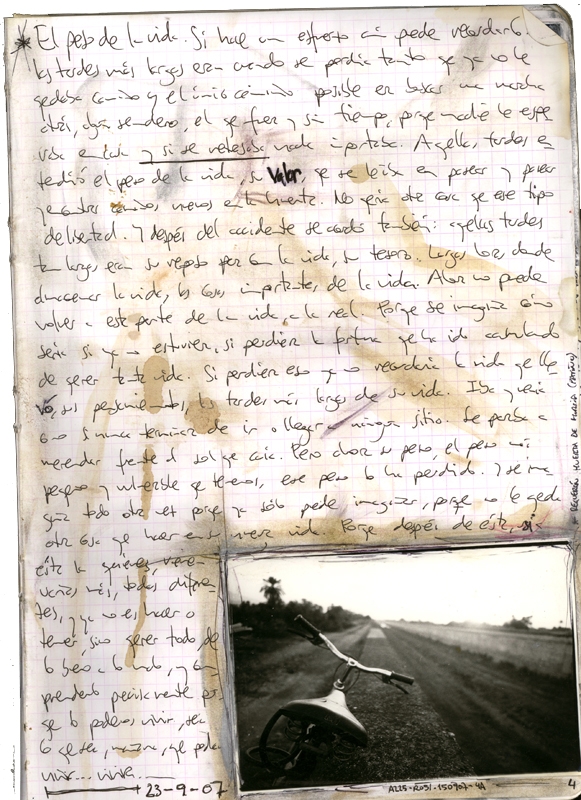 El peso de la vida. Si hace un esfuerzo aún puede recordarlo.
las tardes más largas eran cuando se perdía tanto que ya no le
quedaba camino y el único camino posible era buscar una marcha
atrás, sendero, el que fuera y sin tiempo, porque nadie le espe
raba en casa y si se retrasaba nada importaba. Aquellas tardes en
tendió el peso de la vida, su valor, que se leía en pasear y pasear
y encontrar caminos nuevos en la. No quería otra cosa que ese tipo
de libertad. Y después del accidente se acordó también: aquellas tardes
tan largas eran su reposo por la vida, su tesoro. Largas donde
almacenar la vida, las cosas importantes de la vida. Ahora no puede
volver a este parte de la vida, a la real. Porque se imagina cómo
sería si ya no estuviera, si perdiera la fortuna que ha ido acumulando
de querer tanta vida. Si perdiera eso ya no recordaría la vida que lle
vó, sus pensamientos, las tardes más largas de su vida. Iba y venía
como si nunca terminara de ir o llegar a ningún sitio. Se paraba a
merendar frente al sol que caía. Pero ahora su peso, el peso más
pequeño y vulnerable que tenemos, ese peso lo ha perdido. Y se ima
gina todo otra vez porque ya sólo puede imaginar, porque no le queda
otra cosa que hacer en su nueva vida. Porque después de esta, si
ésta la quieres, ven
varias más, todas diferen
tes, y ya no es hacer o
tener, sino querer todo, de
lo bueno a lo malo, y com
prenderlo precisamente por
que lo podemos vivir, sea
lo que sea, mañana, que poder
vivir... vivir...
23-9-07
A225·ROSI·150907·4A
4